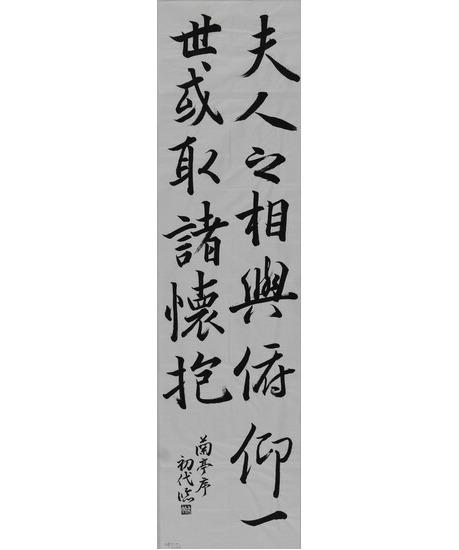 夫人之相與俯仰一
世或取諸懷抱
蘭亭序
初代臨